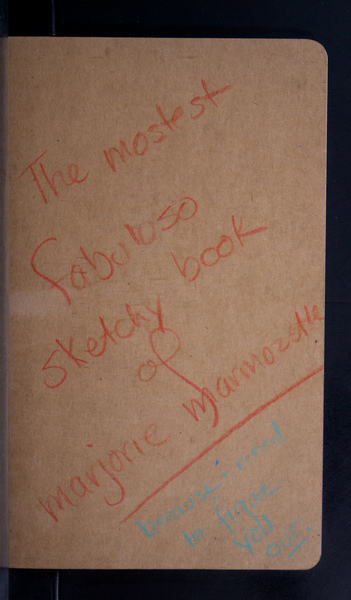 The mostest
fabuloso
sketchy book
of
marjorie marmozette
because i need
to figure
you
out.